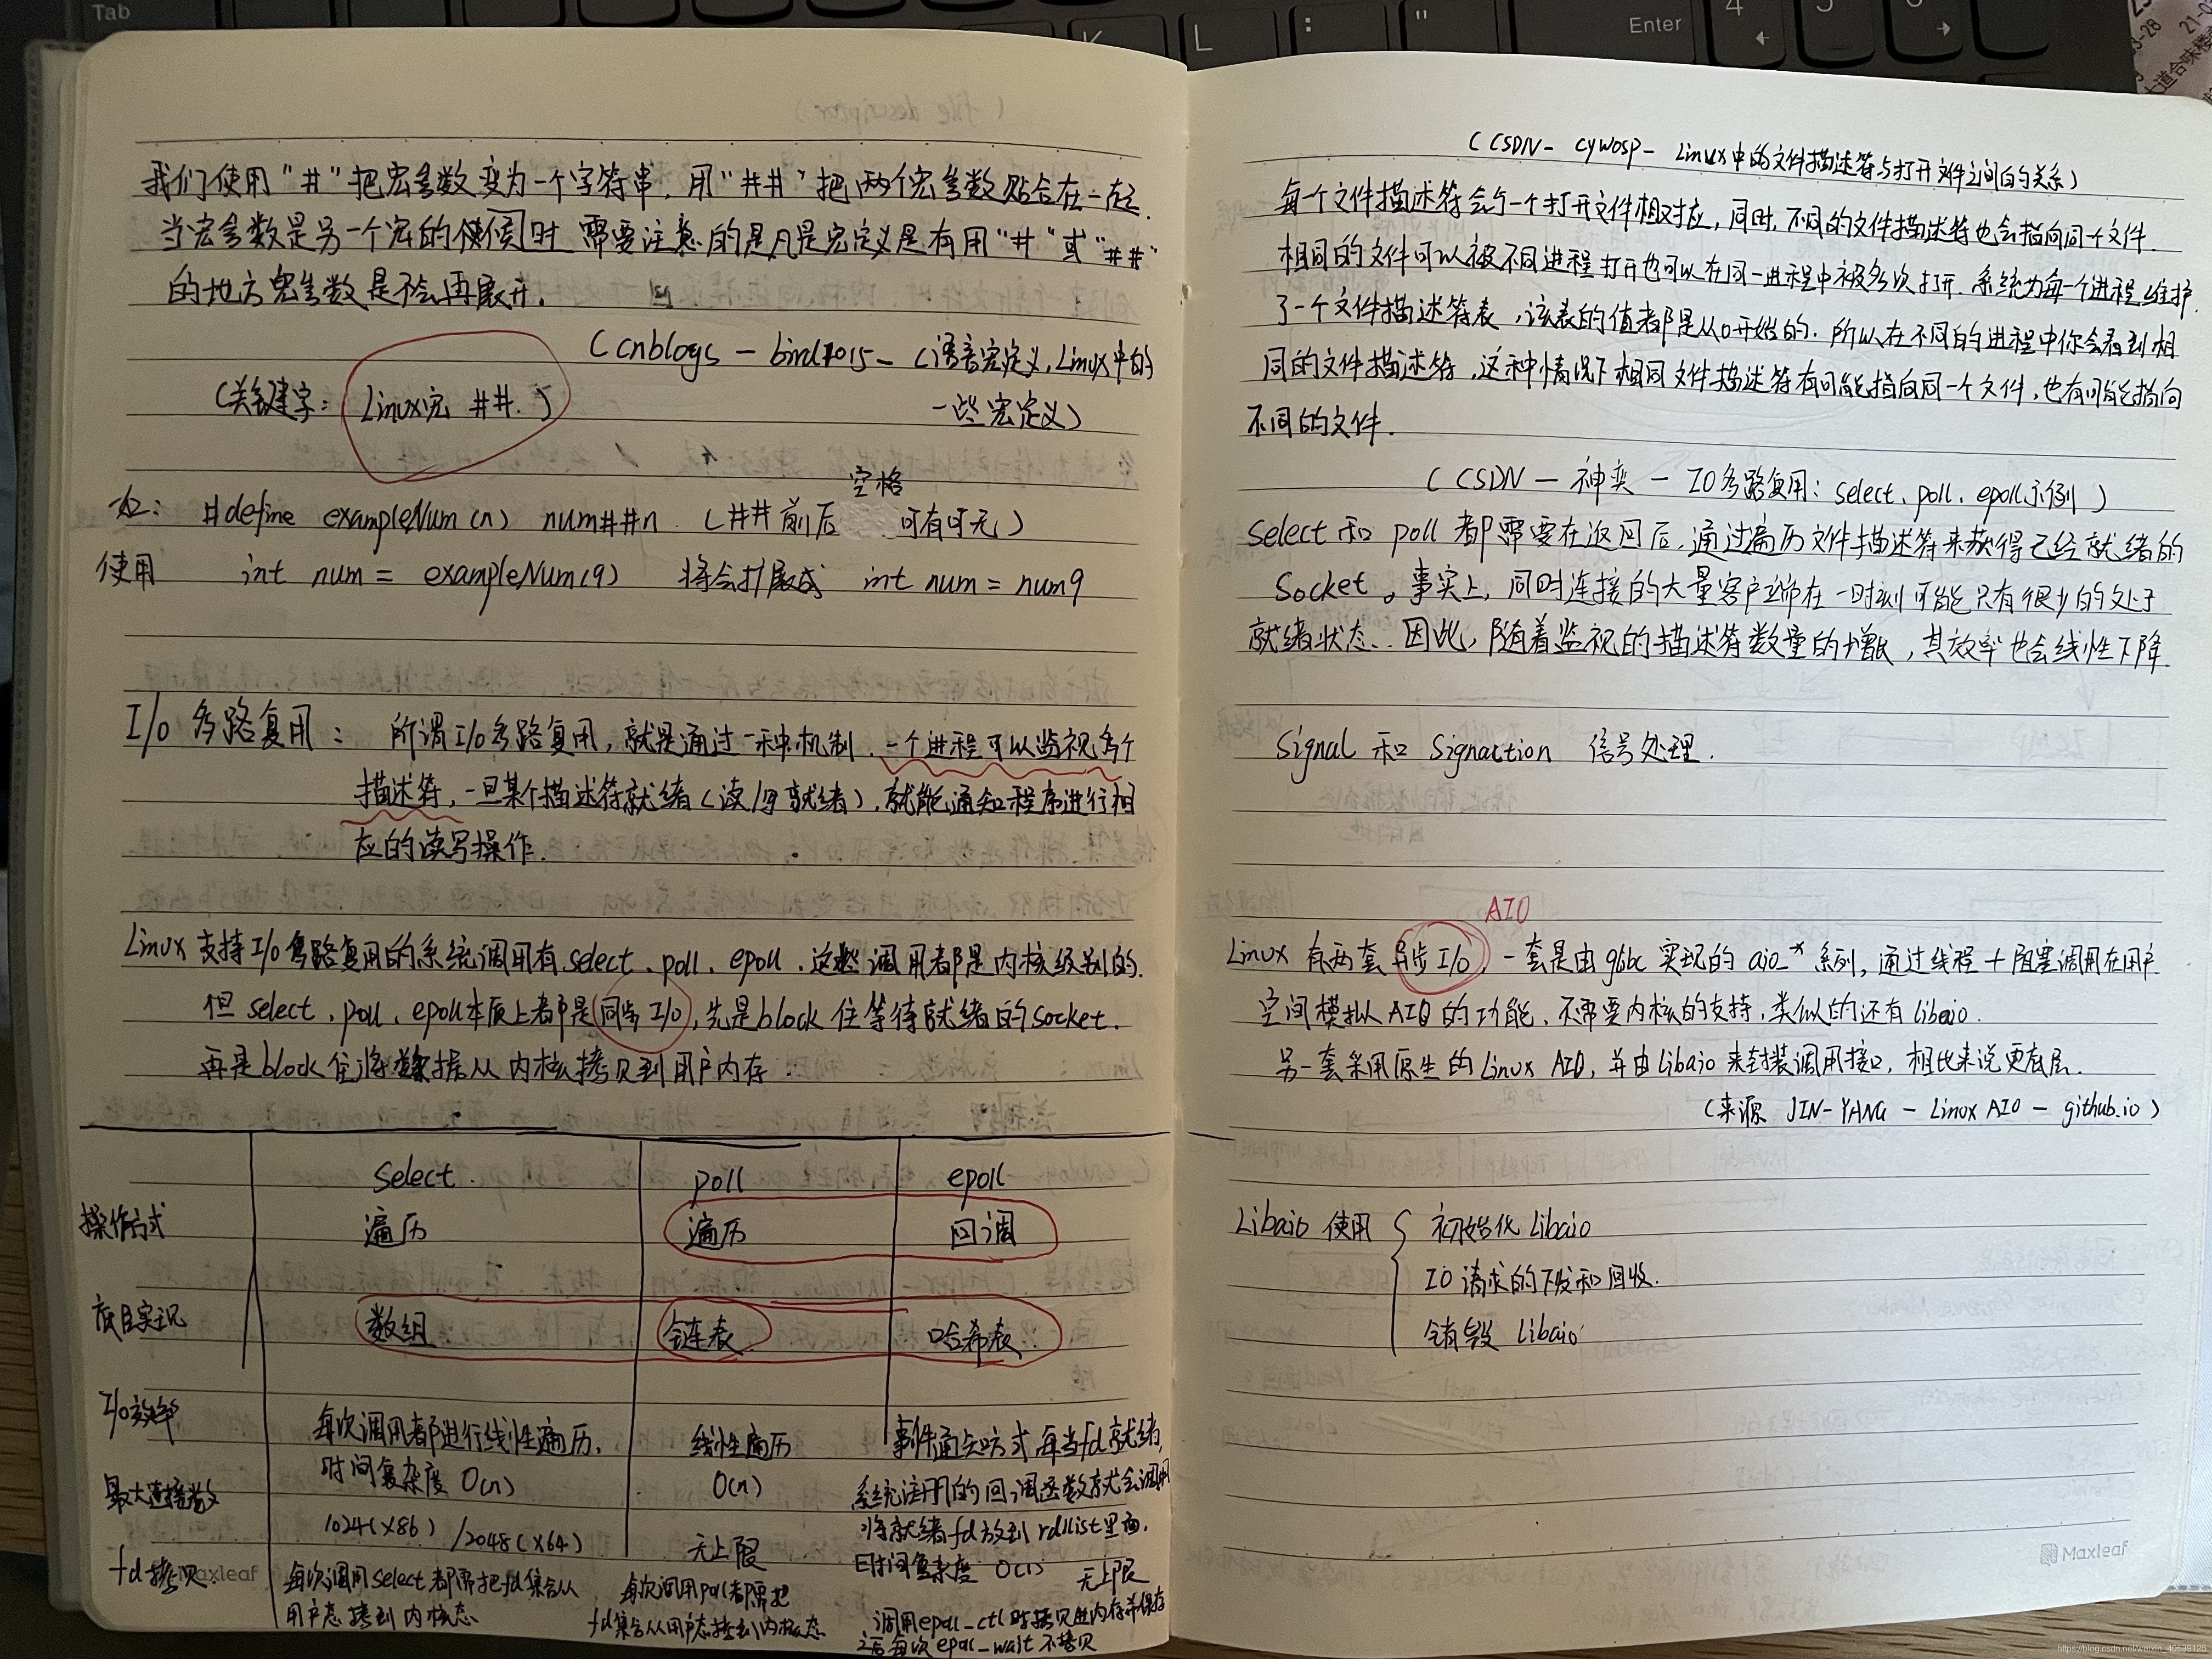 我们使用"#"把宏参数变为一个字符串,用"##"把两个宏参数贴合在一起.
当宏参数是另一个宏的使候时 需要注意的是凡是宏定义是有用"#"或"##"
的地方宏参数是不会再展开.
(cnblogs - bird7015 - C语言宏定义,Linux中的
一些宏定义)
(关键字: Linux宏 ##.)
空格
#define exampleNum(n) num##n (##前后 可有可无)
使用 int num = exampleNum(9) 将会扩展成 int num = num9
I/O 多路复用: 所谓I/O多路复用,就是通过一种机制,一个进程可以监视多个
描述符,一旦某个描述符就绪(读/写就绪),就能通知程序进行相
应的读写操作.
Linux 支持I/O多路复用的系统调用有select、poll、epoll,这些调用都是内核级别的.
但 select、poll、epoll本质上都是同步I/O,先是block住等待就绪的socket.
再是block住将数据从内核拷贝到用户内存.
select. poll epoll
操作方式 遍历 遍历 回调
底层实现 数组 链表 哈希表.
I/O效率 每次调用都进行线性遍历, 线性遍历 事件通知方式,每当fd就绪,
时间复杂度 O(n) O(n) 系统注册的回调函数就会调用
将就绪fd放到rdllist里面,
时间复杂度 O(1)
最大连接数 1024(x86) /2048(x64) 无上限 无上限
fd拷贝 每次调用select都需把fd集合从 每次调用poll都需把 调用epoll_ctl时拷贝进内存并保存
用户态拷到内核态 fd集合从用户态拷到内核态 之后每次epoll_wait不拷贝
Maxleaf
(CSDN - cywosp - Linux中的文件描述符与打开文件之间的关系)
每个文件描述符会与一个打开文件相对应,同时,不同的文件描述符也会指向同一个文件.
相同的文件可以被不同进程打开也可以在同一进程中被多次打开.系统为每一个进程维护
了一个文件描述符表,该表的值都是从0开始的.所以在不同的进程中你会看到相
同的文件描述符,这种情况下相同文件描述符有可能指向同一个文件,也有可能指向
不同的文件.
(CSDN - 神奕 - IO多路复用:select、poll、epoll示例)
select 和 poll 都需要在返回后,通过遍历文件描述符来获得已经就绪的
Socket。事实上,同时连接的大量客户端在一时刻可能只有很少的处于
就绪状态.因此,随着监视的描述符数量的增长,其效率也会线性下降.
Signal 和 Signaction 信号处理.
AIO
Linux 有两套异步I/O,一套是由glibc实现的aio_*系列,通过线程+阻塞调用在用户
空间模拟AIO的功能,不需要内核的支持,类似的还有libeio.
另一套采用原生的Linux AIO,并由Libaio来封装调用接口,相比来说更底层.
(来源 JIN-YANG - Linux AIO - github.io)
Libaio 使用 { 初始化 Libaio
IO 请求的下发和回收.
销毁 Libaio
Maxleaf
Tab
K
L
Enter
https://blog.csdn.net/weixin_40539125